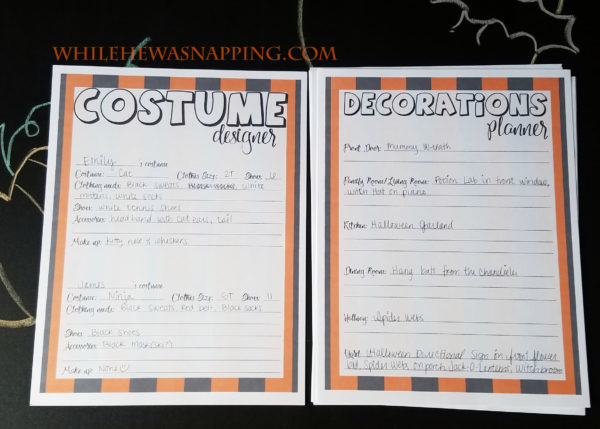 WHILEHEWASNAPPING.COM
COSTUME
designer
Emily 's costume
Costume: Cat Clothes Size: 2T Shoes: 6
Clothing needs: Black sweats, white
mittens, white socks
Shoes: white tennis shoes
Accessories: headband with cat ears, tail
Make up: Kitty nose & whiskers
James 's costume
Costume: Ninja Clothes Size: 5T Shoes: 11
Clothing needs: Black sweats, Red belt, Black socks
Shoes: Black shoes
Accessories: Black Mask (ski?)
Make up: None
DECORATIONS
planner
Front Door: Mummy Wreath
Family Room/Living Room: Potion Lab in front window,
witch Hat on piano
Kitchen: Halloween Garland
Dining Room: Hang bats from the chandelier
Hallway: Spider webs
Yard: Halloween Directional Signs in front flower
bed, Spider Webs on porch, Jack-O-Lanterns, Witch broom